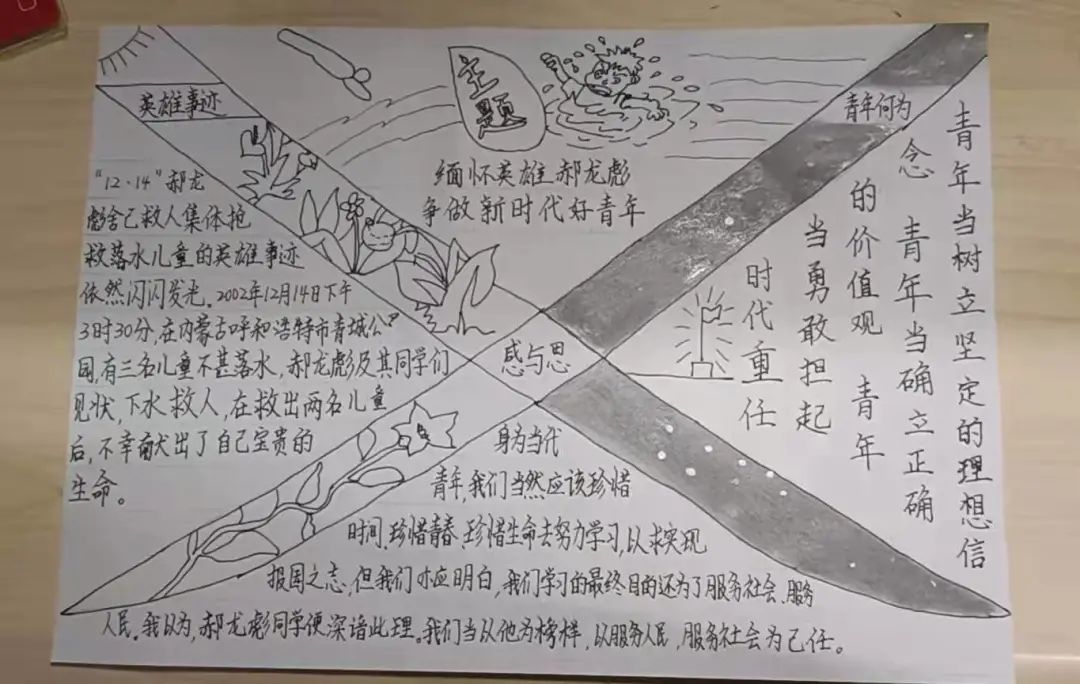 主题
缅怀英雄郝龙彪
争做新时代好青年
英雄事迹
“12·14”郝龙
彪舍己救人集体抢
救落水儿童的英雄事迹
依然闪闪发光。2002年12月14日下午
3时30分,在内蒙古呼和浩特市青城公
园,有三名儿童不甚落水,郝龙彪及其同学们
见状,下水救人,在救出两名儿童
后,不幸献出了自己宝贵的
生命。
青年何为
青年当树立坚定的理想信
念 青年当确立正确
的价值观 青年
当勇敢担起
时代重任
感与思
身为当代
青年,我们当然应该珍惜
时间,珍惜青春,珍惜生命去努力学习,以求实现
报国之志,但我们亦应明白,我们学习的最终目的还为了服务社会、服务
人民。我以为,郝龙彪同学便深谙此理。我们当从他为榜样,以服务人民,服务社会为己任。